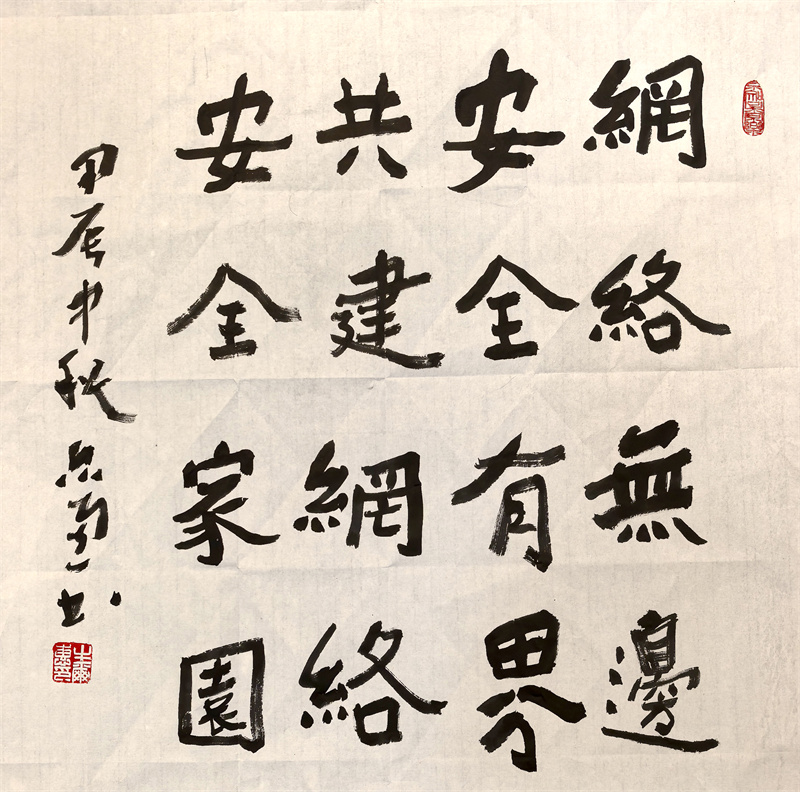 網絡無邊
安全有界
共建網絡
安全家園
甲辰中秋
書